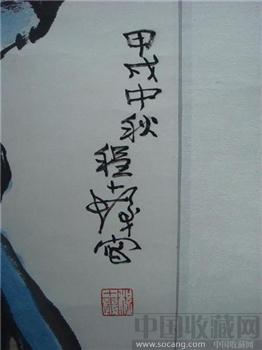 甲戌中秋程十髮
中国收藏网
www.socang.com 中国收藏网